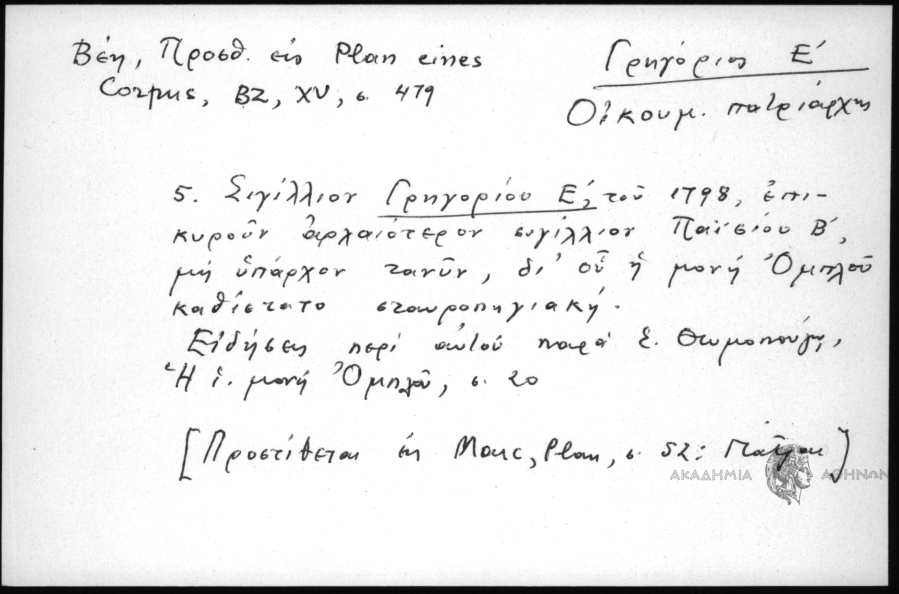 Βέη, Προσθ. εις Plan eines
Corpus, BZ, XV, σ. 479
Γρηγόριος Ε´
Οἰκουμ. πατριάρχης
5. Σιγίλλιον Γρηγορίου Ε´, τοῦ 1798, ἐπι-
κυροῦν ἀρχαιότερον σιγίλλιον Παϊσίου Β´,
μή ὑπάρχον τανῦν, δι' οὗ ἡ μονή Ὀμπλοῦ
καθίστατο σταυροπηγιακή.
Εἰδήσεις περί αὐτοῦ παρά Σ. Θωμοπούλῳ,
Ἡ ἱ. μονή Ὀμπλοῦ, σ. 20
[Προστίθεται εἰς Marc, Plan, σ. 52: Πάτραι]
ΑΚΑΔΗΜΙΑ ΑΘΗΝΩΝ